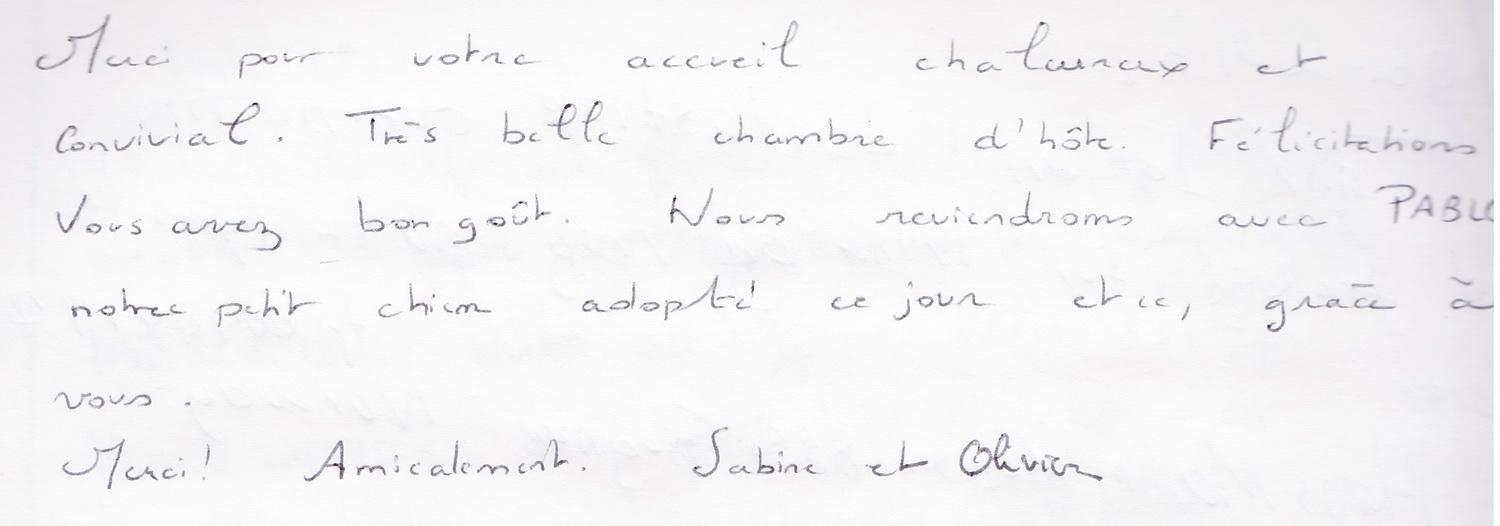 Merci pour votre accueil chaleureux et
Convivial. Très belle chambre d'hôte. Félicitations
Vous avez bon goût. Nous reviendrons avec PABLO
notre petit chien adopté ce jour et ce, grâce à
vous.
Merci! Amicalement. Sabine et Olivier